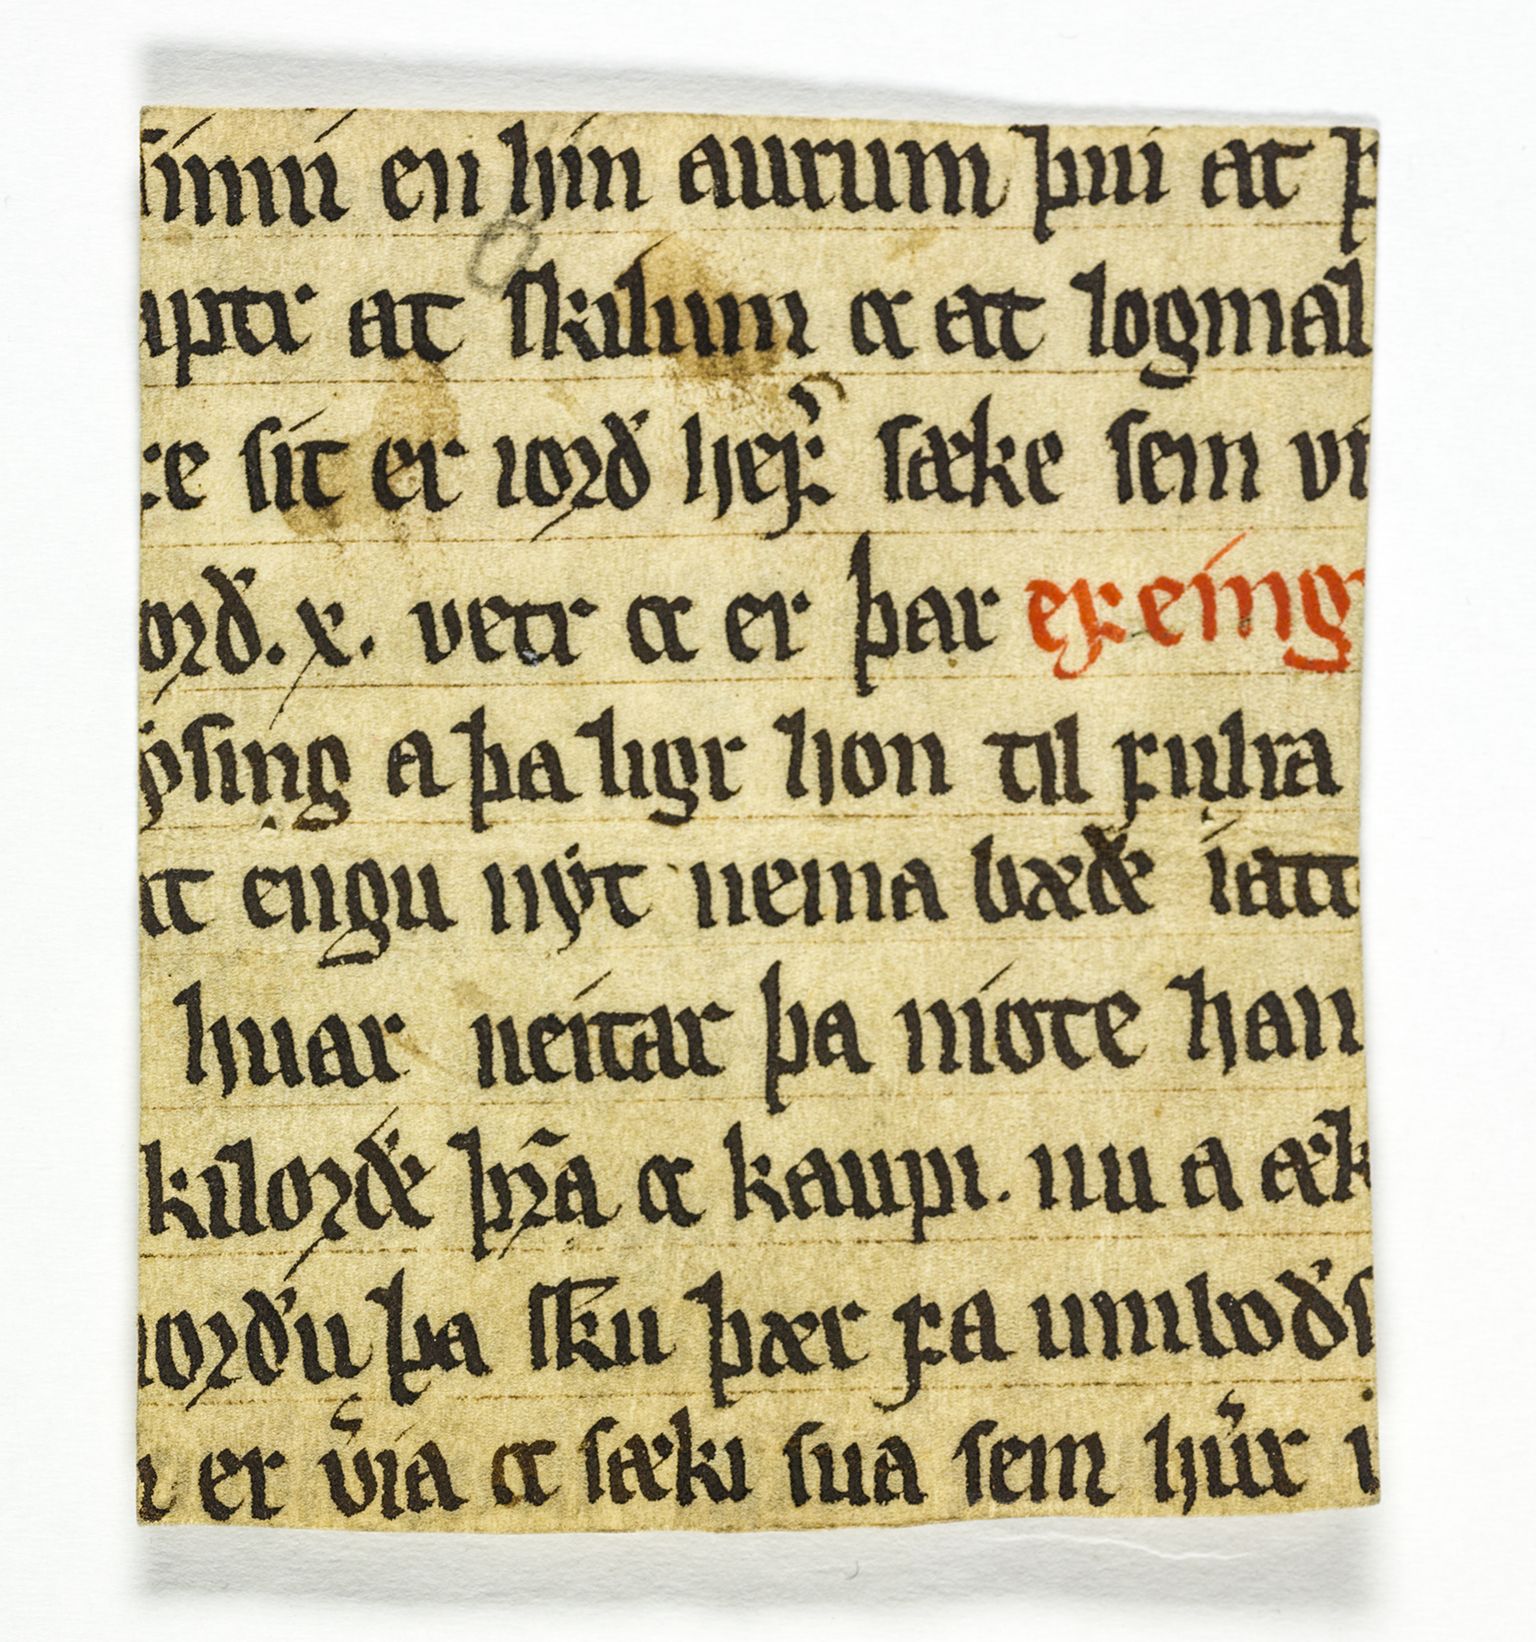 sinni en hin aurum þui at þ
iptr at skilum ꝛ at logmal
re sit er iorð hefr sæke sem vi
orð. x. vetr ꝛ er þar ef eing
ysing a þa ligr hon til fullra
at engu nýt nema bæðe iatt
huar neitar þa niote han
kilorðe þrā ꝛ kaupi. nu a æk
iorðu þa sku þær fa umboðs
er via ꝛ sæki sua sem huꝛr i